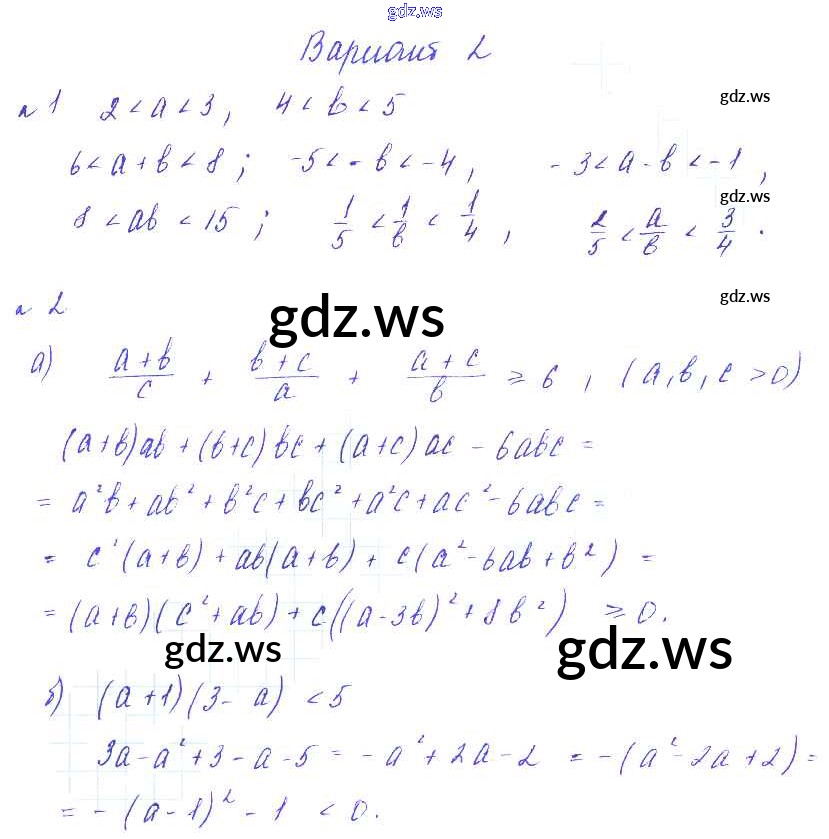 gdz.ws
Вариант 2
№1 2 < a < 3, 4 < b < 5
gdz.ws
6 < a + b < 8; -5 < -b < -4, -3 < a - b < -1,
gdz.ws
8 < ab < 15; 1/5 < 1/b < 1/4, 2/5 < a/b < 3/4.
№2
gdz.ws
gdz.ws
а) (a+b)/c + (b+c)/a + (a+c)/b ≥ 6, (a, b, c > 0)
(a+b)ab + (b+c)bc + (a+c)ac - 6abc =
= a²b + ab² + b²c + bc² + a²c + ac² - 6abc =
= c²(a+b) + ab(a+b) + c(a² - 6ab + b²) =
= (a+b)(c² + ab) + c((a-3b)² + 8b²) ≥ 0.
gdz.ws
gdz.ws
б) (a+1)(3-a) < 5
3a - a² + 3 - a - 5 = -a² + 2a - 2 = -(a² - 2a + 2) =
= -(a-1)² - 1 < 0.